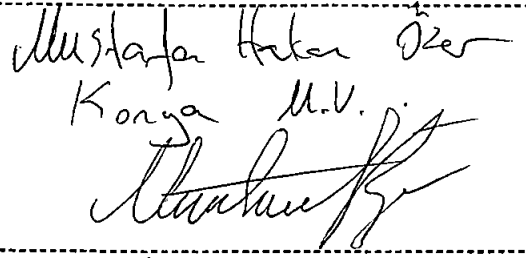 Mustafa Hakan Özer
Konya M.V.